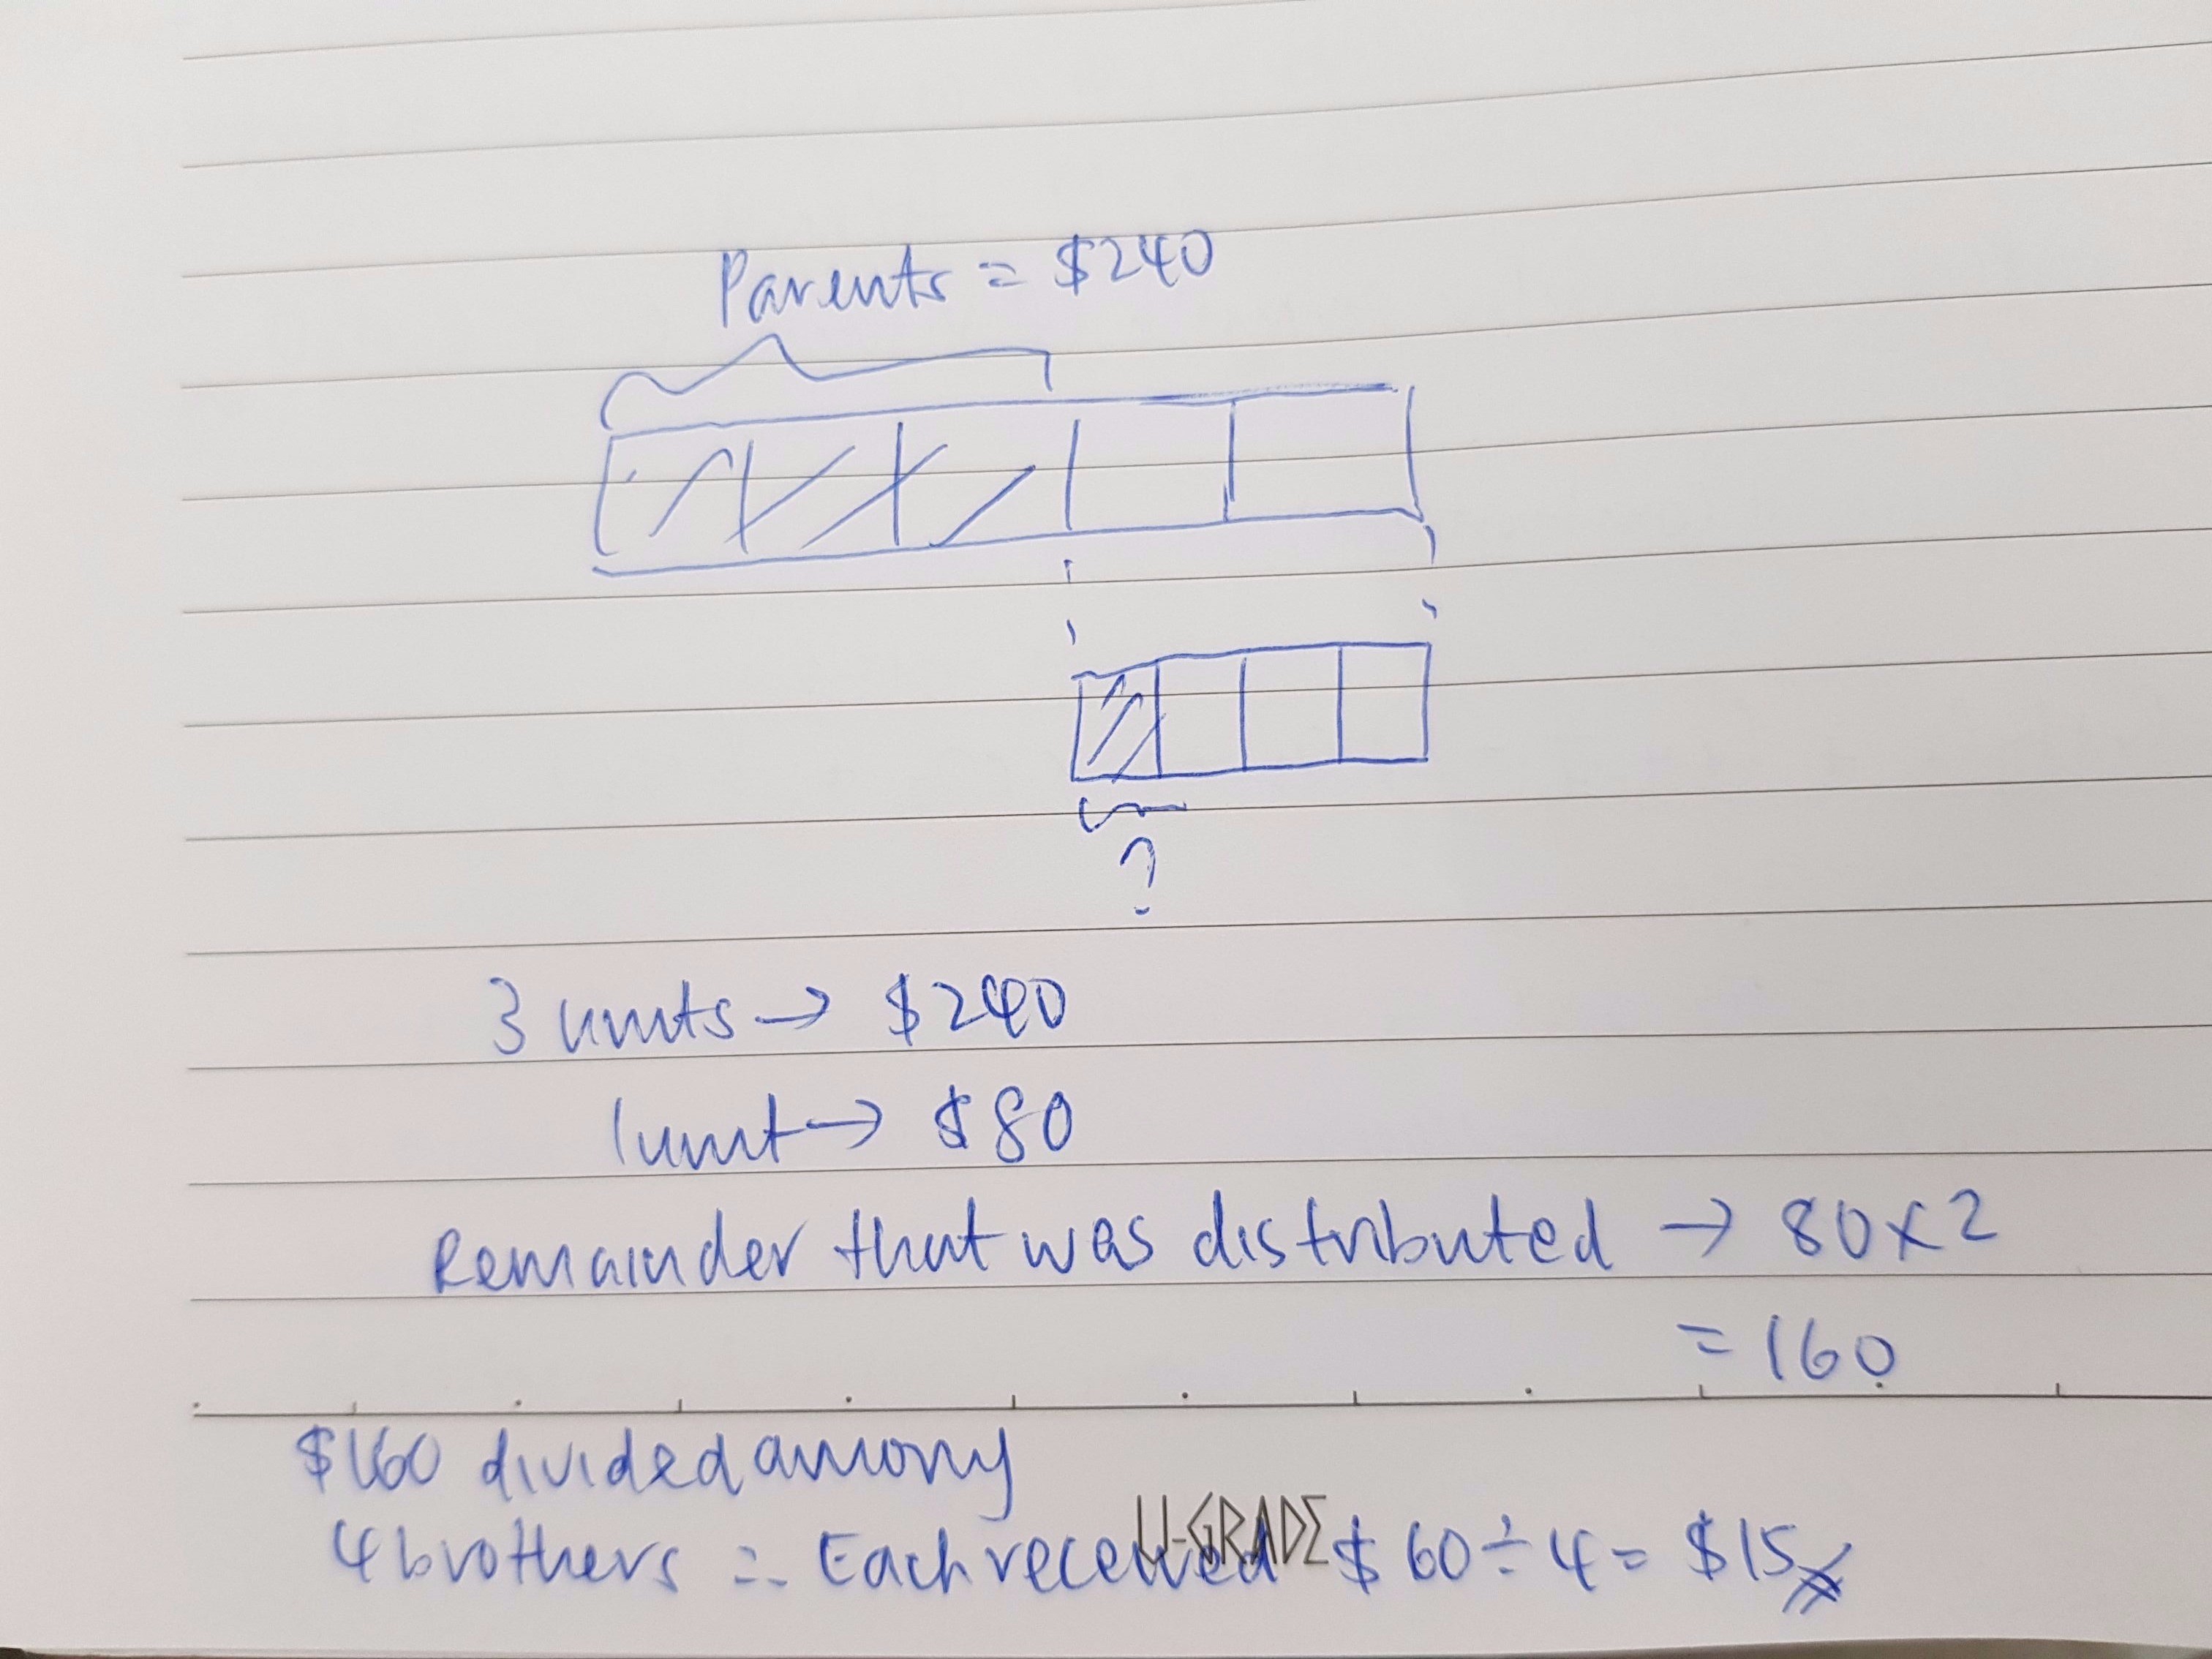 Parents = $240
?
3 units → $240
1 unit → $80
Remainder that was distributed → 80 x 2
= 160
$160 divided among
4 brothers ∴ Each received $60 ÷ 4 = $15
U-GRADE